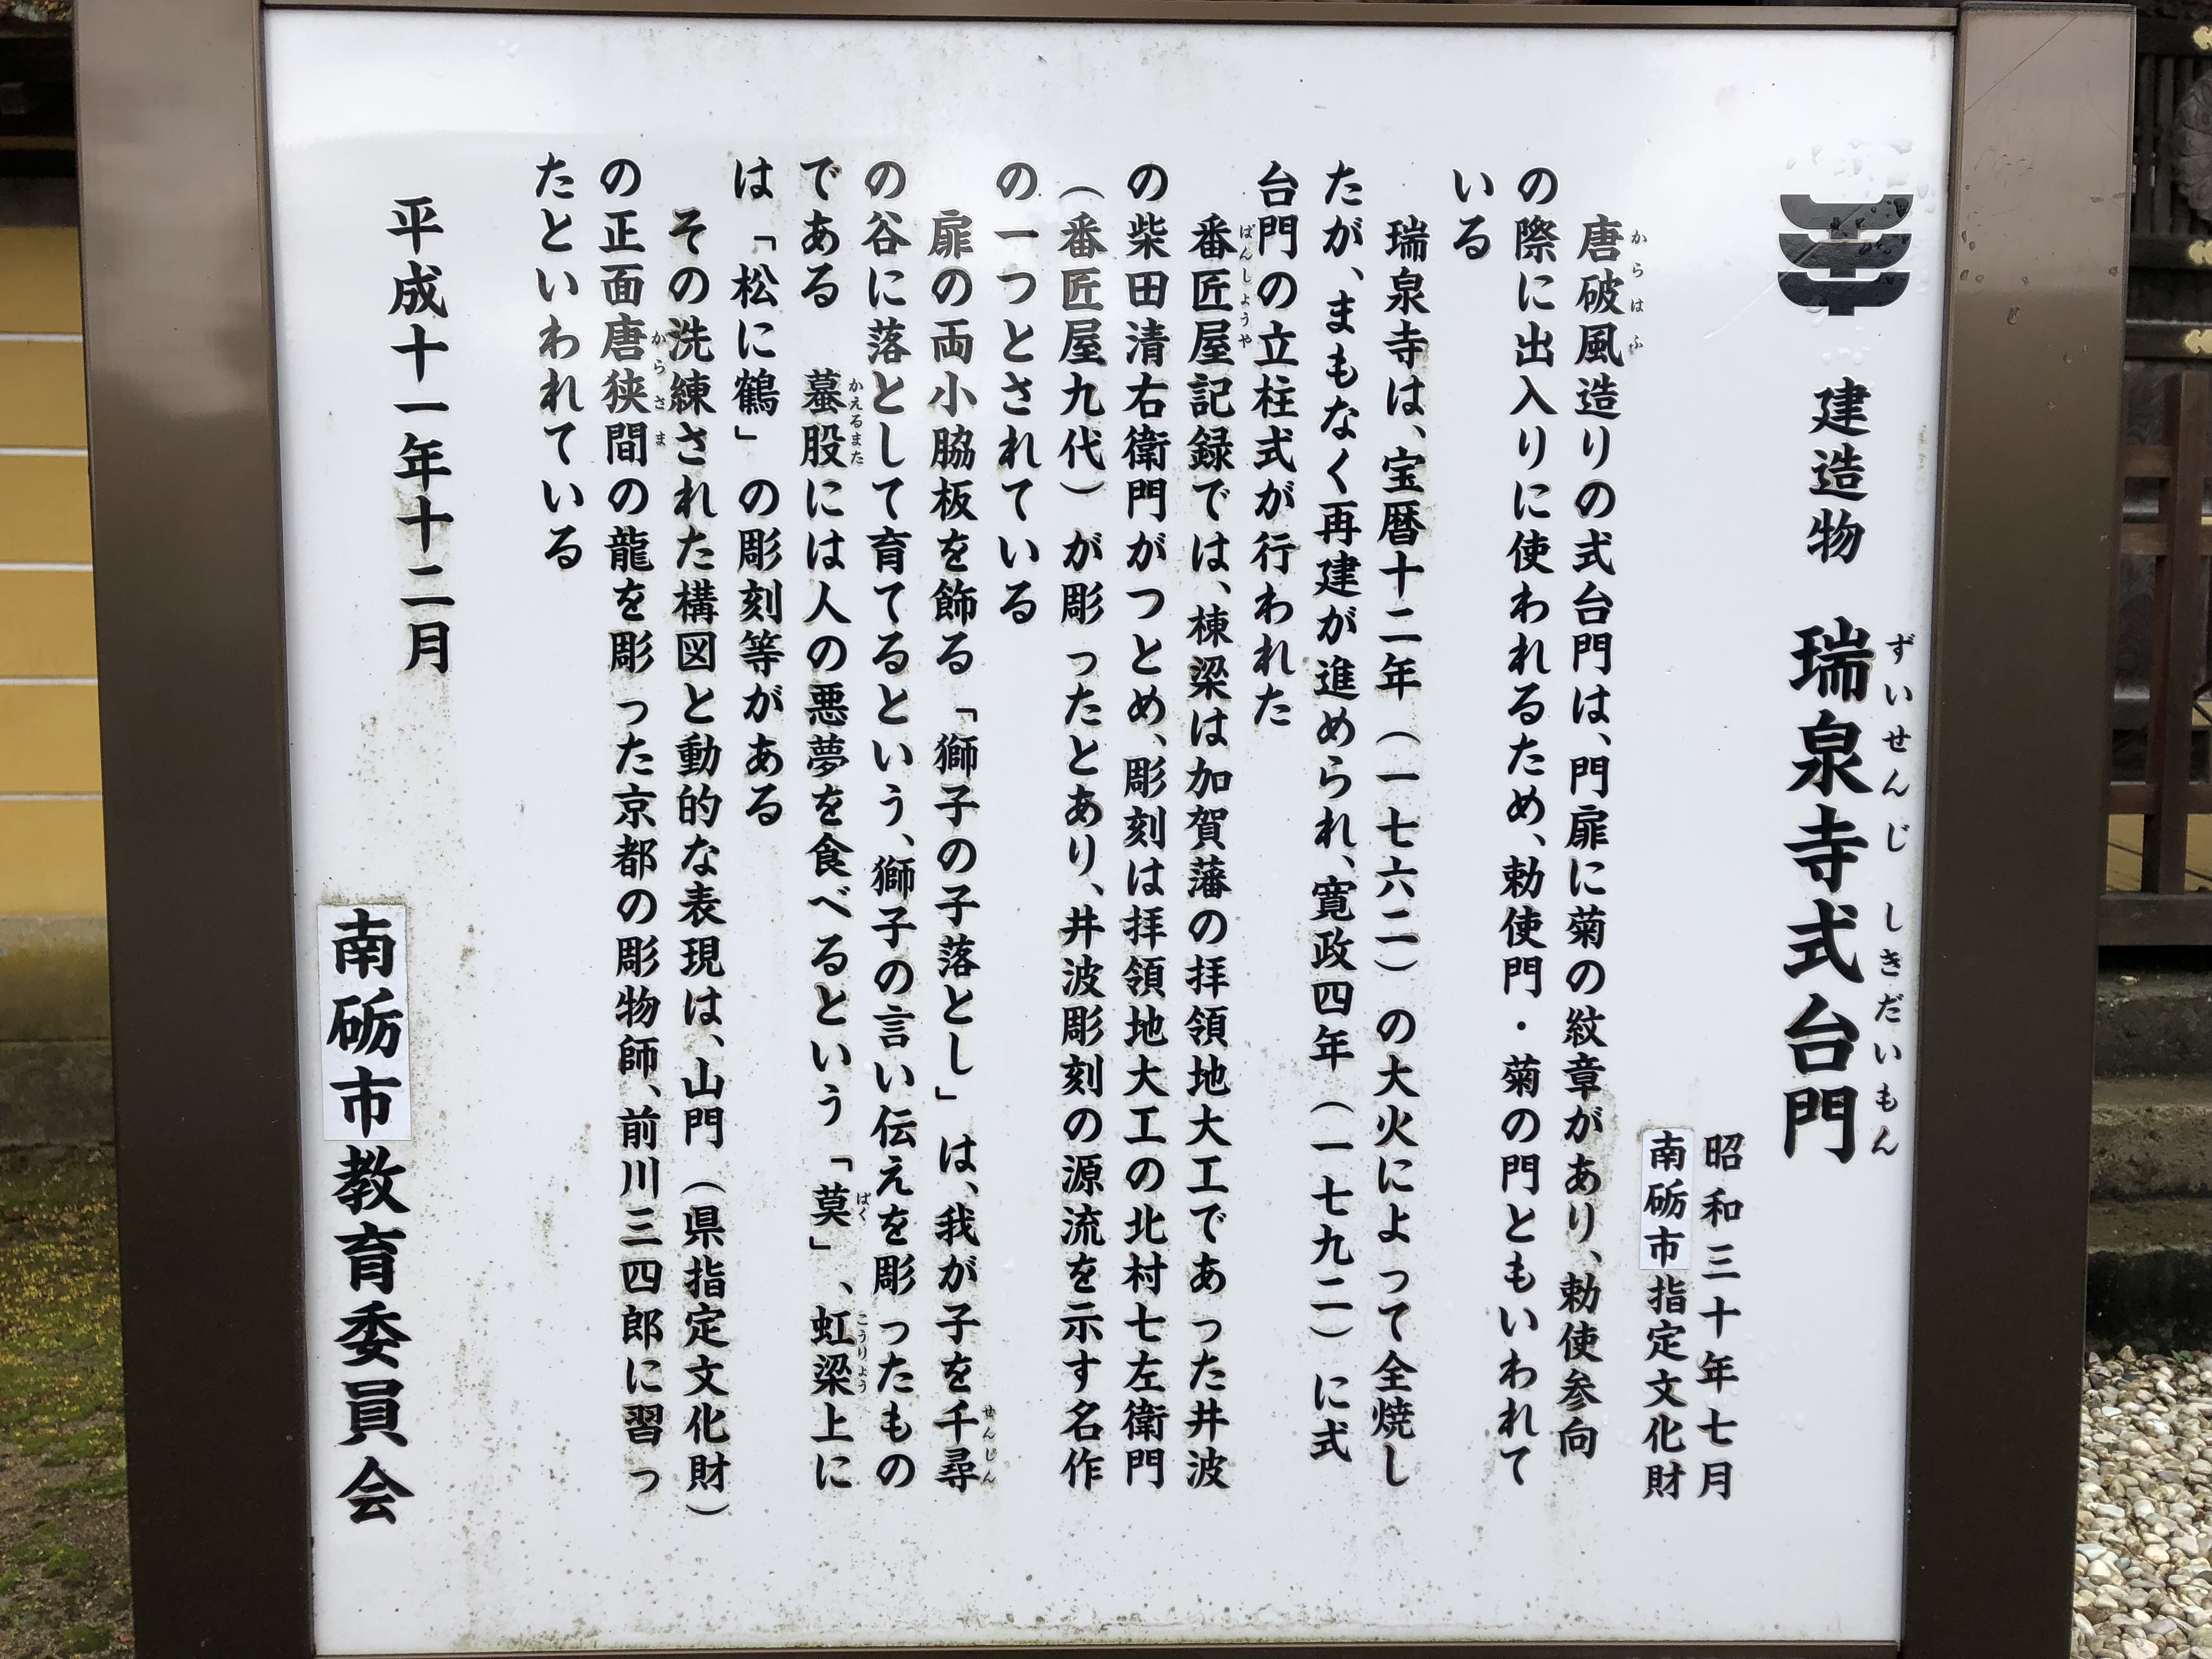 建造物　瑞泉寺式台門
ずいせんじ　しきだいもん
昭和三十年七月
南砺市指定文化財
唐破風造りの式台門は、門扉に菊の紋章があり、勅使参向
からはふ
の際に出入りに使われるため、勅使門・菊の門ともいわれて
いる
瑞泉寺は、宝暦十二年（一七六二）の大火によって全焼し
たが、まもなく再建が進められ、寛政四年（一七九二）に式
台門の立柱式が行われた
番匠屋記録では、棟梁は加賀藩の拝領地大工であった井波
ばんしょうや
の柴田清右衛門がつとめ、彫刻は拝領地大工の北村七左衛門
（番匠屋九代）が彫ったとあり、井波彫刻の源流を示す名作
の一つとされている
扉の両小脇板を飾る「獅子の子落とし」は、我が子を千尋
せんじん
の谷に落として育てるという、獅子の言い伝えを彫ったもの
である　蟇股には人の悪夢を食べるという「莫」、虹梁上に
かえるまた
ばく
こうりょう
は「松に鶴」の彫刻等がある
その洗練された構図と動的な表現は、山門（県指定文化財）
の正面唐狭間の龍を彫った京都の彫物師、前川三四郎に習っ
からさま
たといわれている
平成十一年十二月
南砺市教育委員会